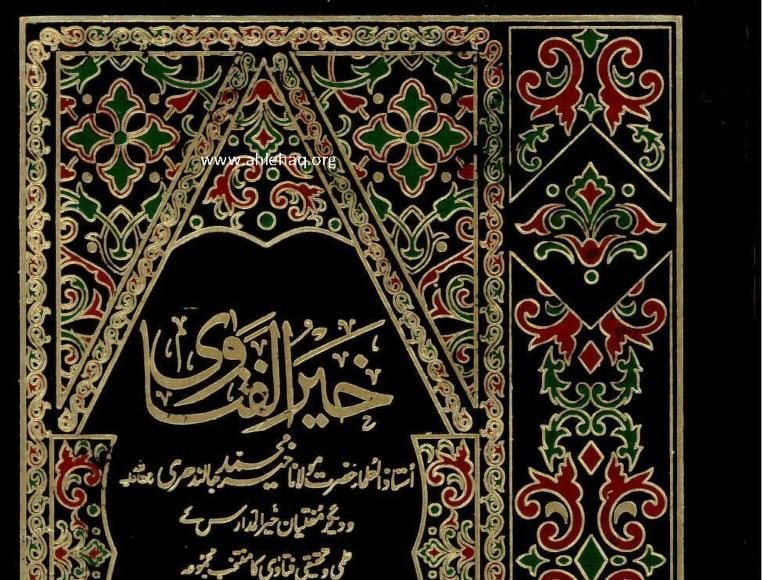 www.ahlehaq.org
خیر الفتاوی
استاذ العلماء حضرت مولانا خیر محمد جالندھری
و دیگر مفتیان خیر المدارس کے
علمی و تحقیقی فتاوی کا منتخب مجموعہ